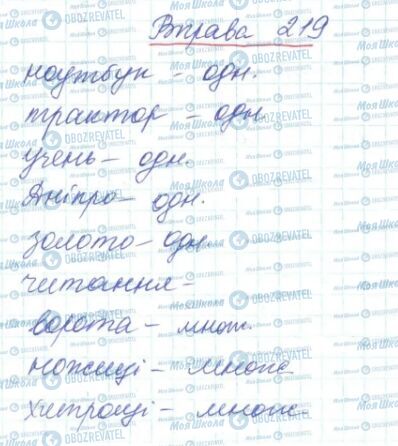 Вправа 219
ноутбук – одн.
трактор – одн.
учень – одн.
Дніпро – одн.
золото – одн.
читання –
ворота – множ.
ножиці – множ.
хитрощі – множ.